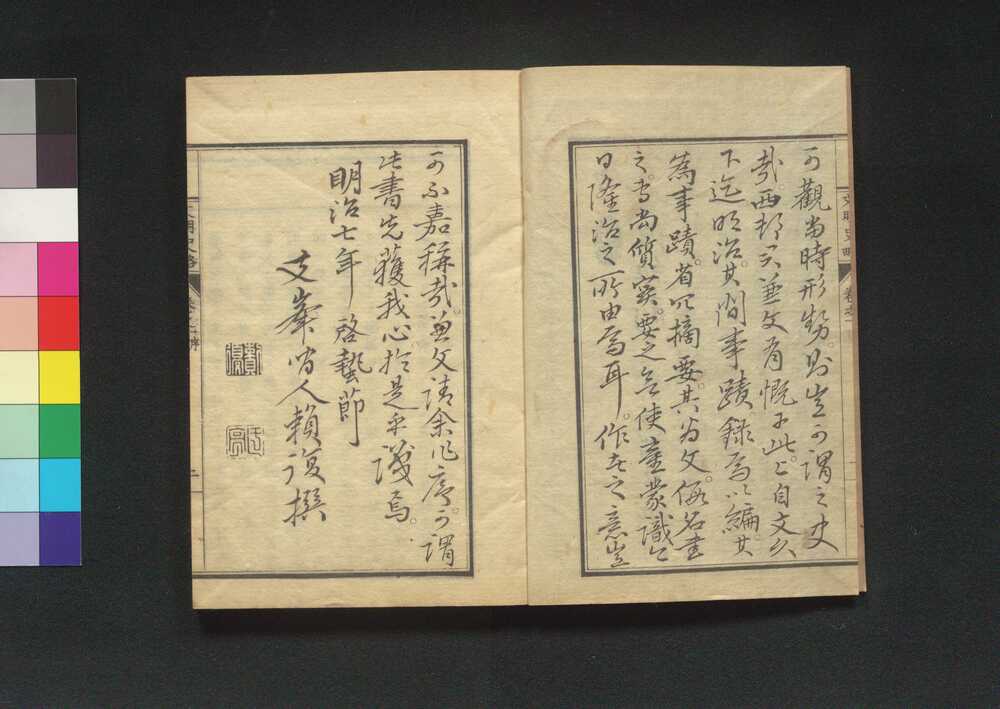 文明史略 卷之一
可觀當時形勢。則豈可謂之史
哉。西邨兄兼文有慨于此。上自文久
下迄明治。其間事蹟錄爲以編。其
爲事蹟。省冗摘要。其爲文。假名書
之。専尚質實。要之使童蒙識今
日隆治之所由爲耳。作者之意豈
可不嘉稱哉。兼文請余作序。可謂
此書先獲我心。於是乎識焉。
明治七年 啓蟄節
支峯人賴復撰
賴復
文明史略 卷之一 序 二